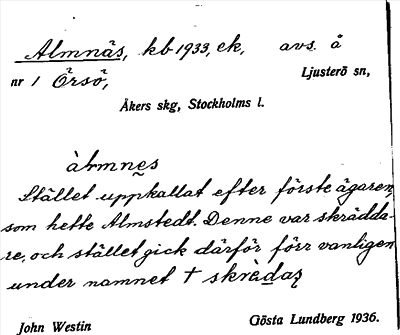 Almnäs, kb 1933, ek, avs. å
nr 1 Örsö, Ljusterö sn,
Åkers skg, Stockholms l.
àlmnẹs
Stället uppkallat efter förste ägaren,
som hette Almstedt. Denne var skrädda-
re, och stället gick därför förr vanligen
under namnet † skrèdaʒ
John Westin Gösta Lundberg 1936.